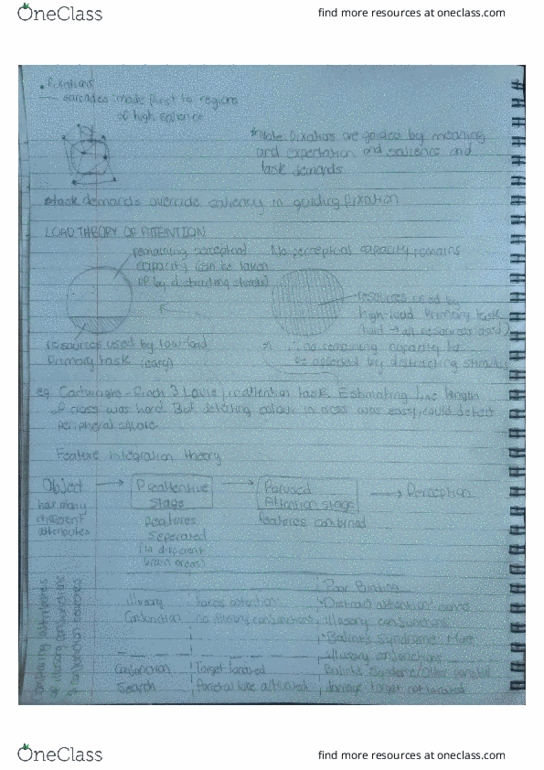 OneClass
find more resources at oneclass.com
• Fixations
— saccades made first to regions
of high salience
* Note: fixations are guided by meaning
and expectation and salience and
task demands
* task demands override saliency in guiding fixation
LOAD THEORY OF ATTENTION
remaining perceptual
capacity (can be taken
up by distracting stimuli)
No perceptual capacity remains
resources used by
high-load primary task
∴ no remaining capacity to
be affected by distracting stimuli
resources used by low-load
primary task (easy)
eg. Cartwright-Finch & Lavie, inattention task. Estimating line lengths
of cross was hard. But detecting colour in cross was easy, could detect
peripheral square.
Feature integration theory
Object → Preattentive Stage → Focused Attention stage → Perception
has many
different
attributes
features
seperated
(in different
brain areas)
features combined
illusory conjunctions
Poor Binding
Illusory
Conjunction
focus attention
no illusory conjunctions
Distract attention
illusory conjunctions
Balint's Syndrome: More
illusory conjunctions
Conjunction
Search
Target located
Parietal lobe activated
Balint's Syndrome/other parietal
damage: target not located
OneClass
find more resources at oneclass.com